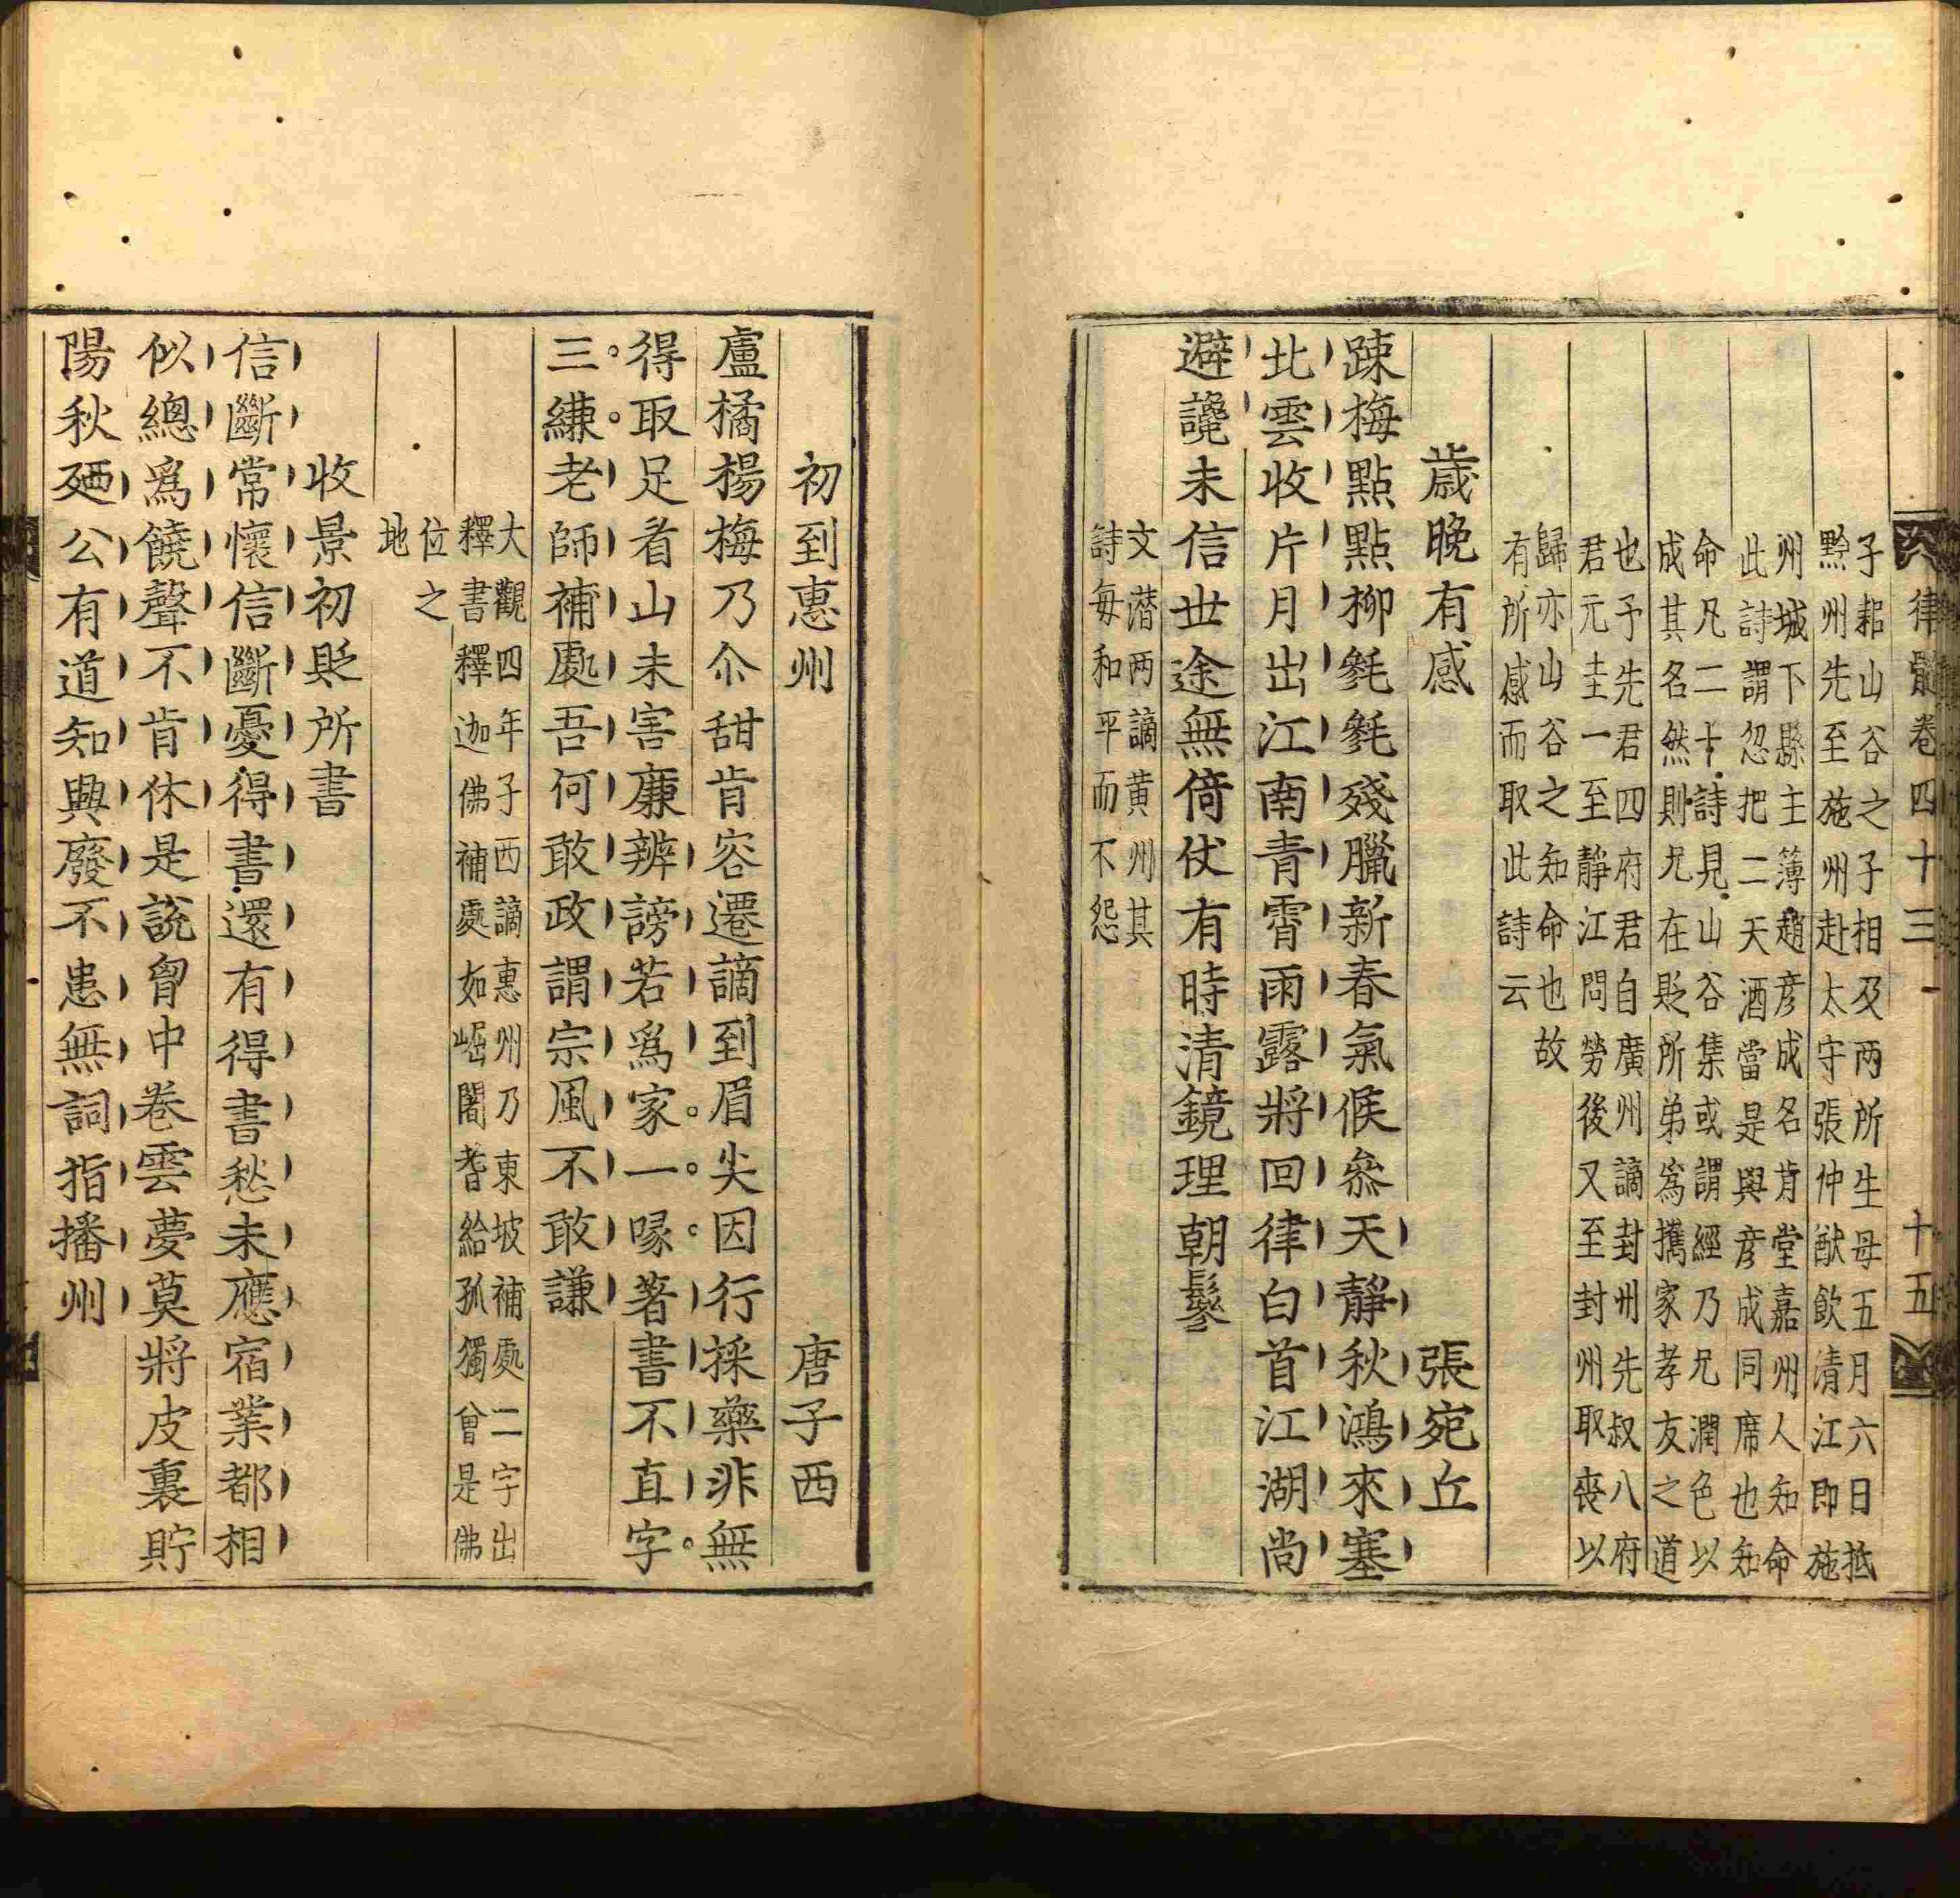 律髓卷四十三 十五
子耜山谷之子相及两所生母五月六日抵
黔州先至施州赴太守張仲猷飲清江即施
州城下縣主薄趙彦成名肯堂嘉州人知命
此詩謂忽把二天酒當是與彦成同席也知
命凡二十詩見山谷集或謂經乃兄潤色以
成其名然則兄在貶所弟為擕家孝友之道
也予先君四府君自廣州謫封州先叔八府
君元圭一至静江問勞後又至封州取喪以
歸亦山谷之知命也故
有所感而取此詩云
歲晚有感 張宛丘
踈梅點點柳毿毿殘臘新春氣候叅天靜秋鴻來塞
北雲收片月出江南青霄雨露將回律白首江湖尚
避讒未信世途無倚仗有時清鏡理朝鬖
文潛两謫黄州其
詩每和平而不怨
初到惠州 唐子西
盧橘楊梅乃尒甜肯容遷謫到眉尖因行採藥非無
得取足看山未害亷辨謗若爲家一喙著書不直字
三縑老師補處吾何敢政謂宗風不敢謙
大觀四年子西謫惠州乃東坡補處二字出
釋書釋迦佛補處如崛闍耆給孤獨曾是佛
位之
地
收景初貶所書
信斷常懷信斷憂得書還有得書愁未應宿業都相
似總爲饒聲不肯休是說胷中巻雲夢莫將皮裏貯
陽秋廼公有道知興廢不患無詞指播州